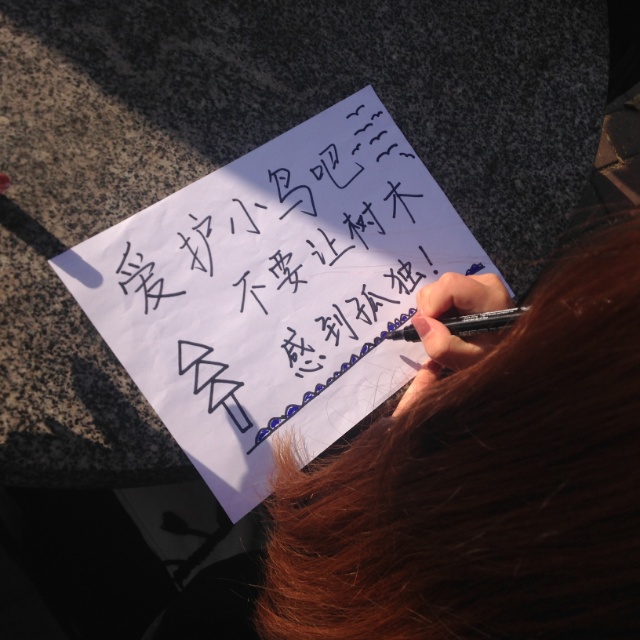 爱护小鸟吧
不要让树木
感到孤独！